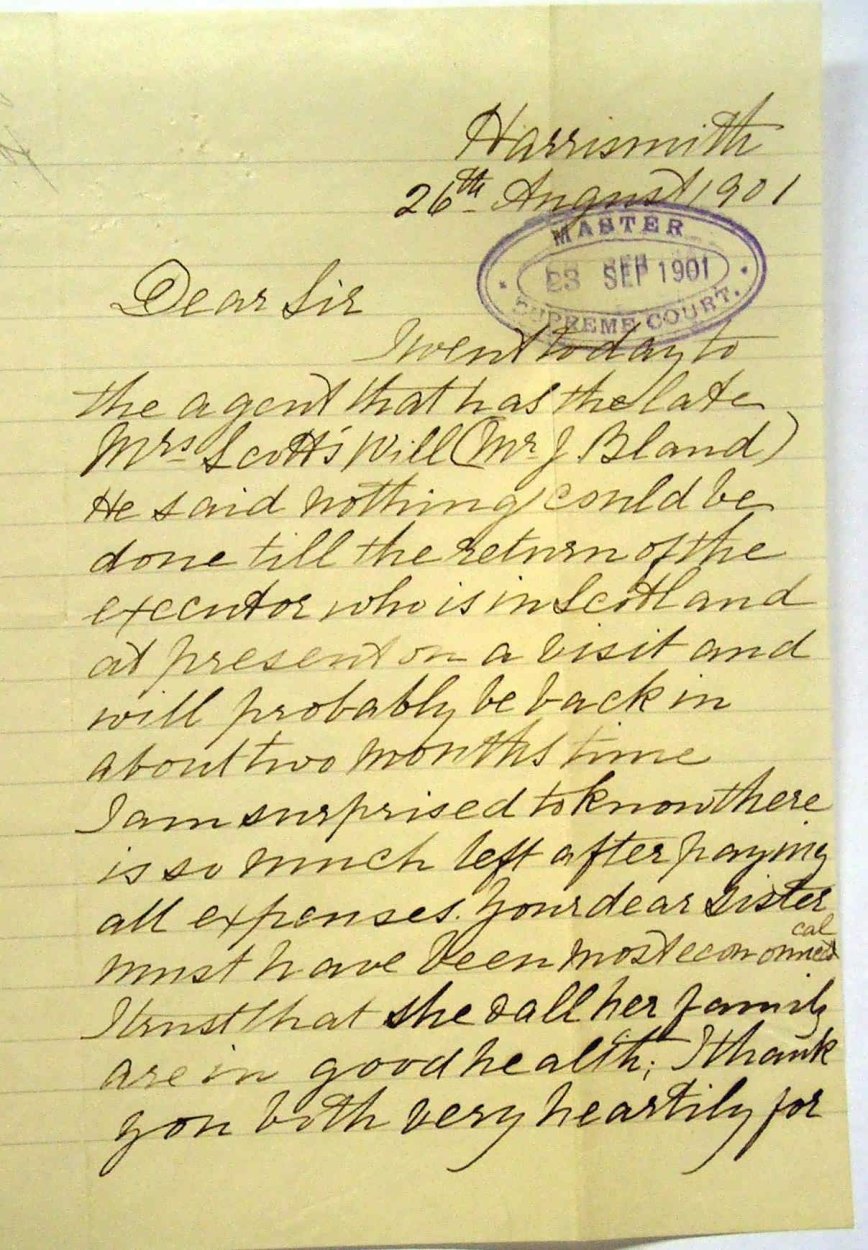 Harrismith
26th August 1901
MASTER
SEP 1901
SUPREME COURT.
Dear Sir
I went to day to
the agent that has the late
Mrs Scott's Will (Mr J. Bland)
He said nothing could be
done till the return of the
executor who is in Scotland
at present on a visit and
will probably be back in
about two months time
I am surprised to know there
is so much left after paying
all expenses. Your dear sister
cal
must have been most economi
I trust that she & all her family
are in good health; I thank
you both very heartily for